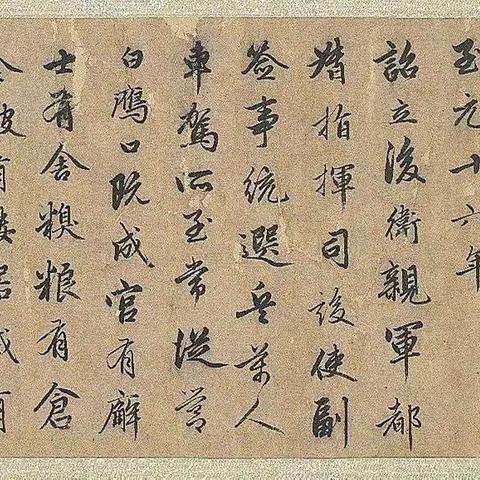 至元十六年
詔立後衛親軍都
指揮司設使副
簽事統選兵萬人
車駕所至常從營
白鴈口既成官有廨
士有舍糗粮有倉
有樓居